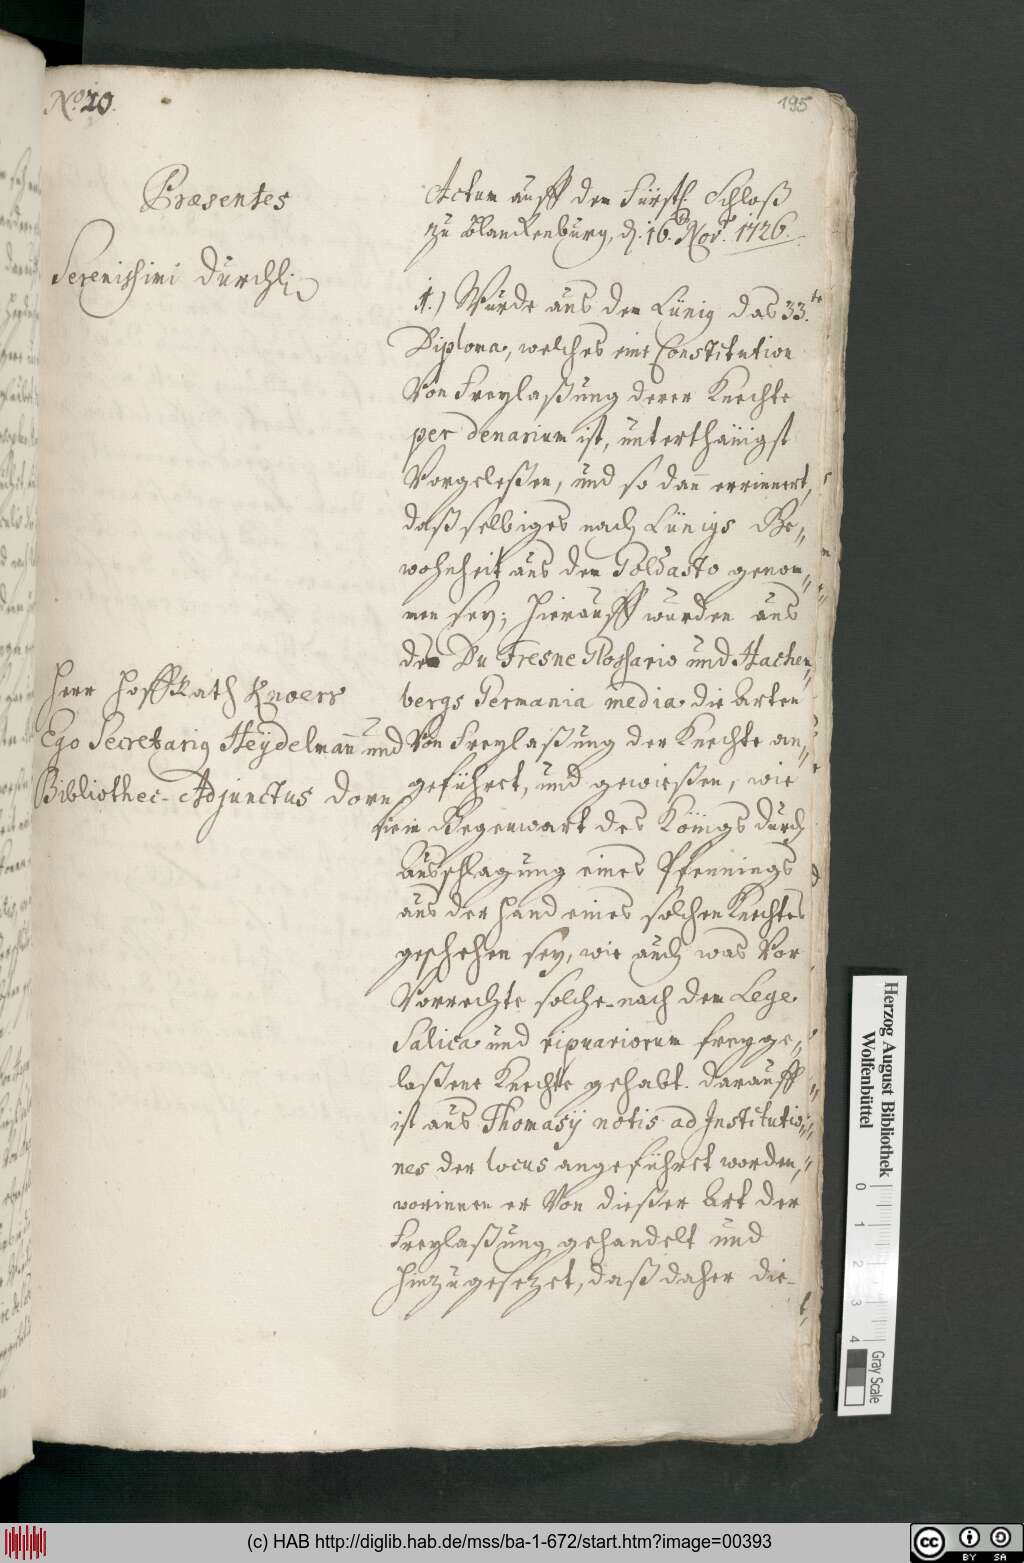 No. 20.
195
Præsentes
Serenissimi Durchl.
Herr Hoff Rath Knoerr
Ego Secretarig Heÿdelmañ und
Bibliothec-Adjunctus Dorn
Actum auff dem Fürstl. Schloß
zu Blanckenburg, d. 16. Nov. 1726.
1.) Wurde aus dem Lünig das 33.te
Diploma, welches eine Constitution
Von Freylaßung derer Knechte
per denarium ist, unterthänigst
Vorgeleßen, und so dañ errinnert,
daß selbiges nach Lünigs Ge„
wohnheit aus dem Goldasto genom„
men sey; Hierauff wurden aus
dem Du Fresne Glossario und Hachen„
bergs Germania media die Arten
Von Freylaßung der Knechte an„
geführet, und gewießen, wie
sie in Gegenwart des Königs durch
Ausschlagung eines Pfennings
aus der Hand eines solchen Knechtes
geschehen sey, wie auch was Vor
Vorrechte solche nach dem Lege
Salica und ripuariorum freyge„
laßene Knechte gehabt. Darauff
ist aus Thomasÿ notis ad Institutio„
nes der locus angeführet worden,
worinnen er Von dießer Art der
Freylaßung gehandelt und
hinzugesezet, daß daher die-
Herzog August Bibliothek
Wolfenbüttel
0 1 2 3 4
Gray Scale
(c) HAB http://diglib.hab.de/mss/ba-1-672/start.htm?image=00393
cc BY SA